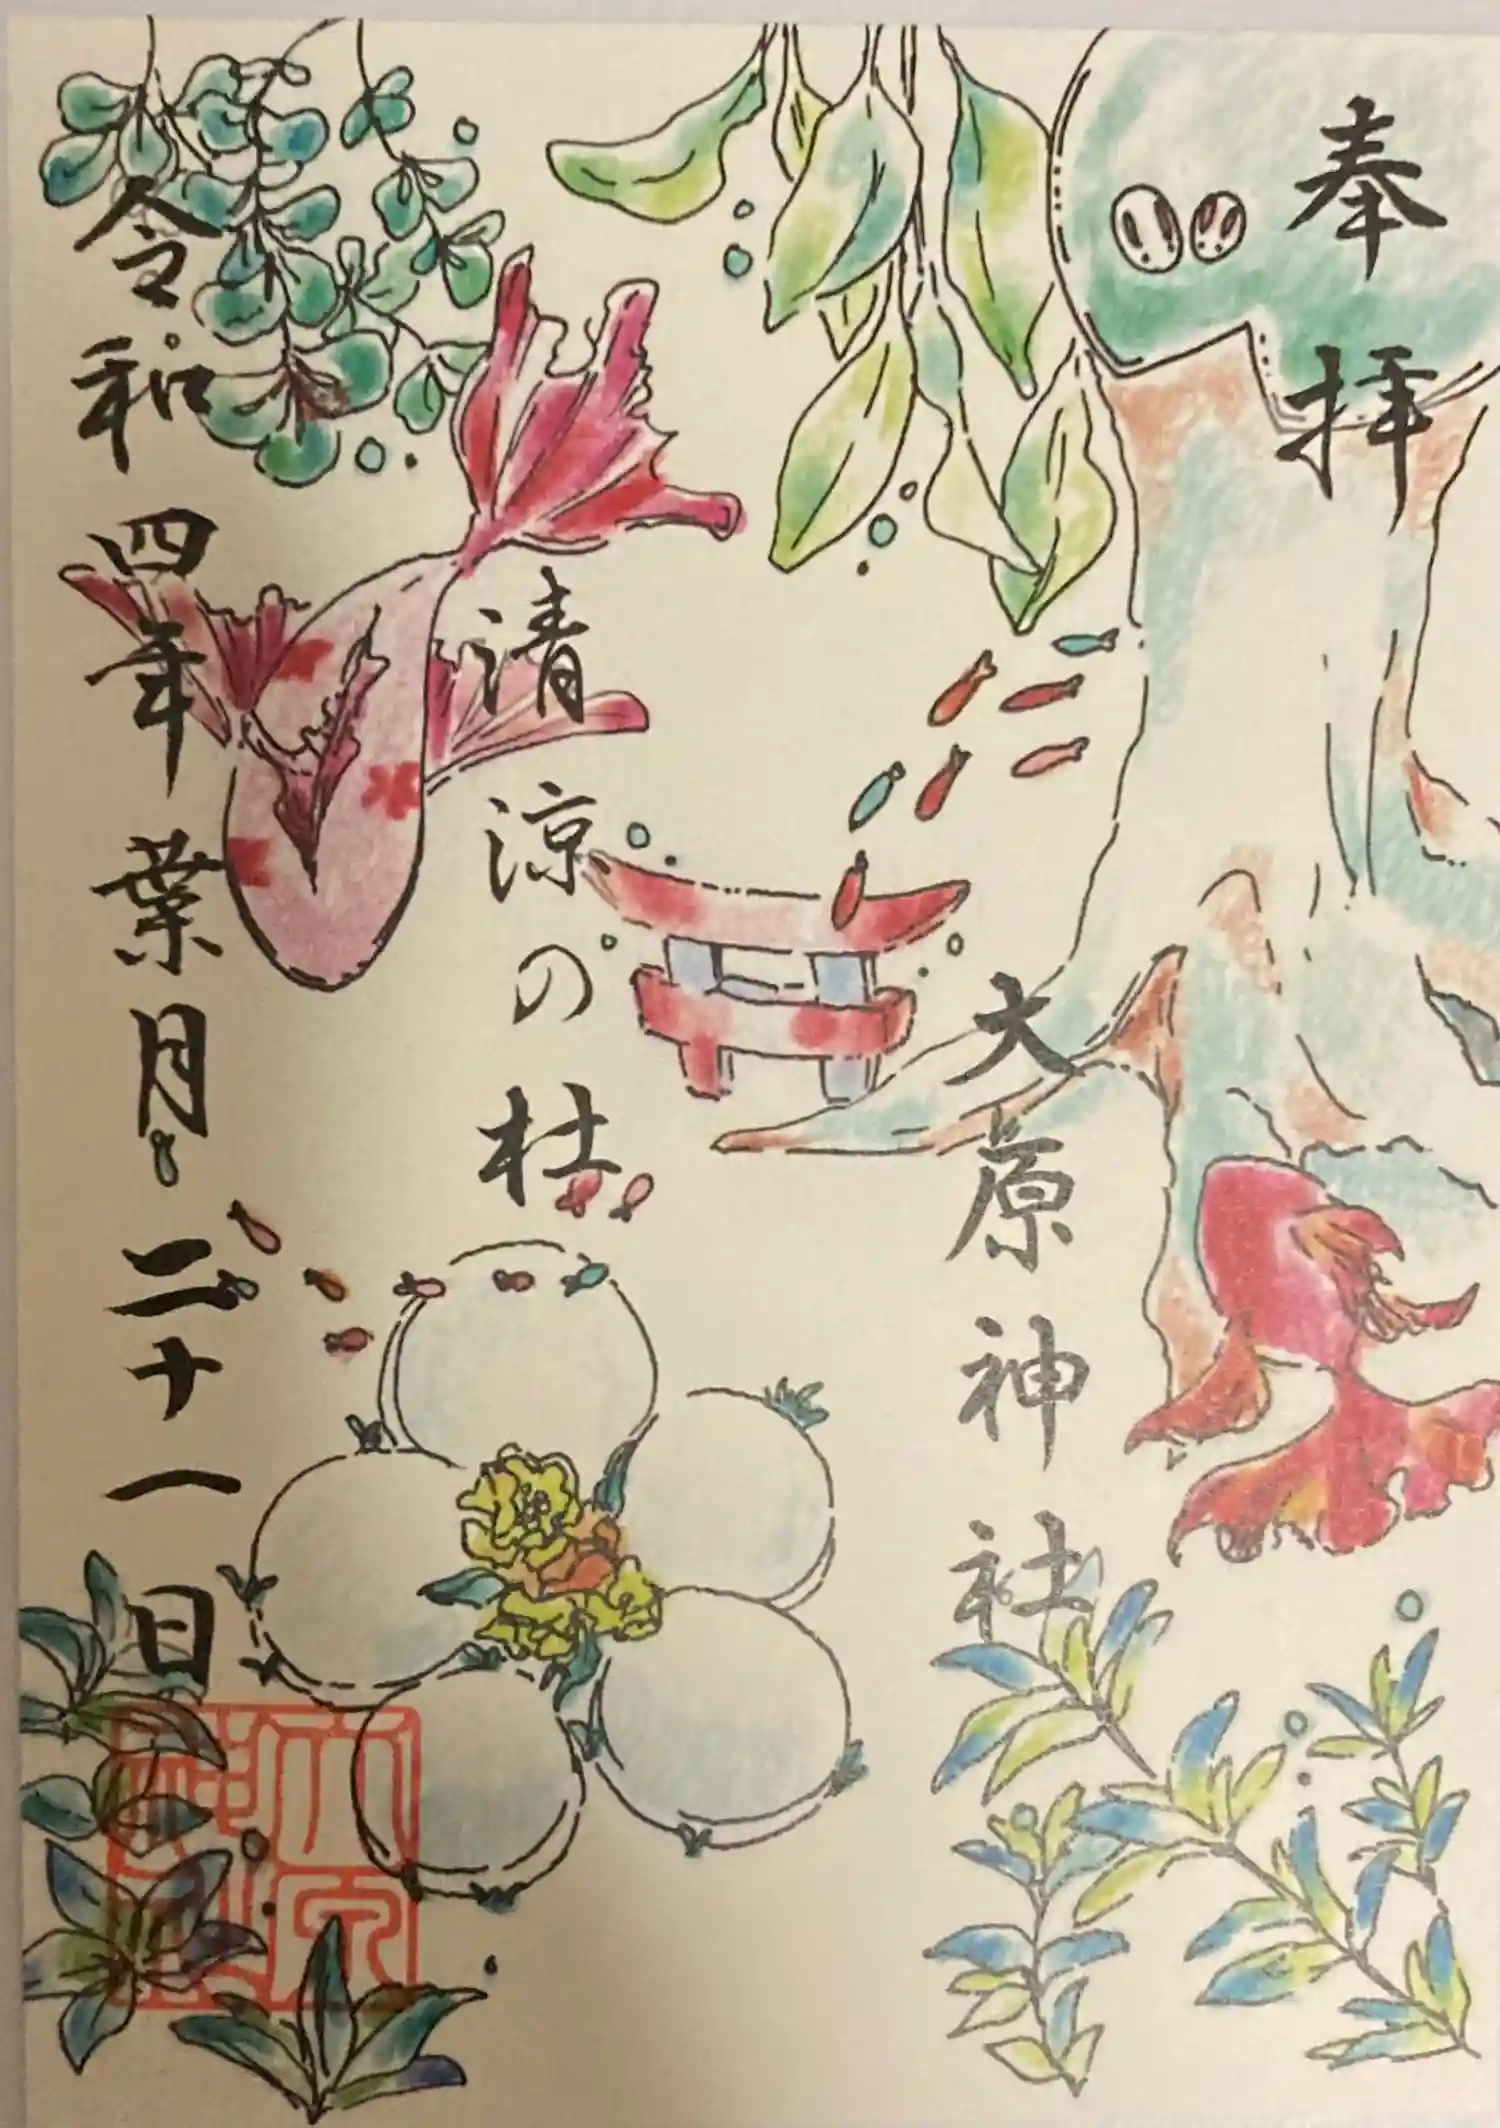 奉拝
大原神社
清涼の杜
令和四年葉月二十一日